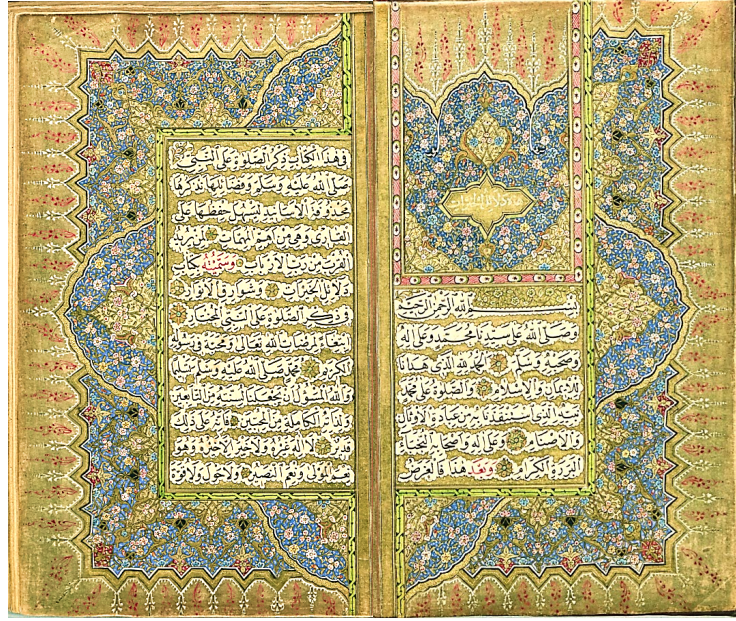 هذه دلائل الخيرات
بسم الله الرحمن الرحيم
وصلى الله على سيدنا محمد وعلى اله
وصحبه وسلم الحمد لله الذي هدانا
للايمان والاسلام والصلوة على محمد
نبيه الذي استنقذنا به من عبادة الاوثان
والاصنام وعلى اله واصحابه النجباء
البررة الكرام وبعد هذا فالغرض
في هذا الكتاب ذكر الصلوة على النبي
صلى الله عليه وسلم وفضائلها نذكرها
محذوفة الاسانيد ليسهل حفظها على
القارئ وهي من اهم المهمات لمن يريد
القرب من رب الارباب وسميته بكتاب
دلائل الخيرات وشوارق الانوار
في ذكر الصلوة على النبي المختار
ابتغاء لمرضات الله تعالى ومحبة في رسوله
الكريم محمد صلى الله عليه وسلم تسليما
والله المسئول ان يجعلنا لسنته من التابعين
ولذاته الكاملة من المحبين فانه على ذلك
قدير لا اله غيره ولا خير الا خيره وهو
نعم المولى ونعم النصير ولا حول ولا قوة